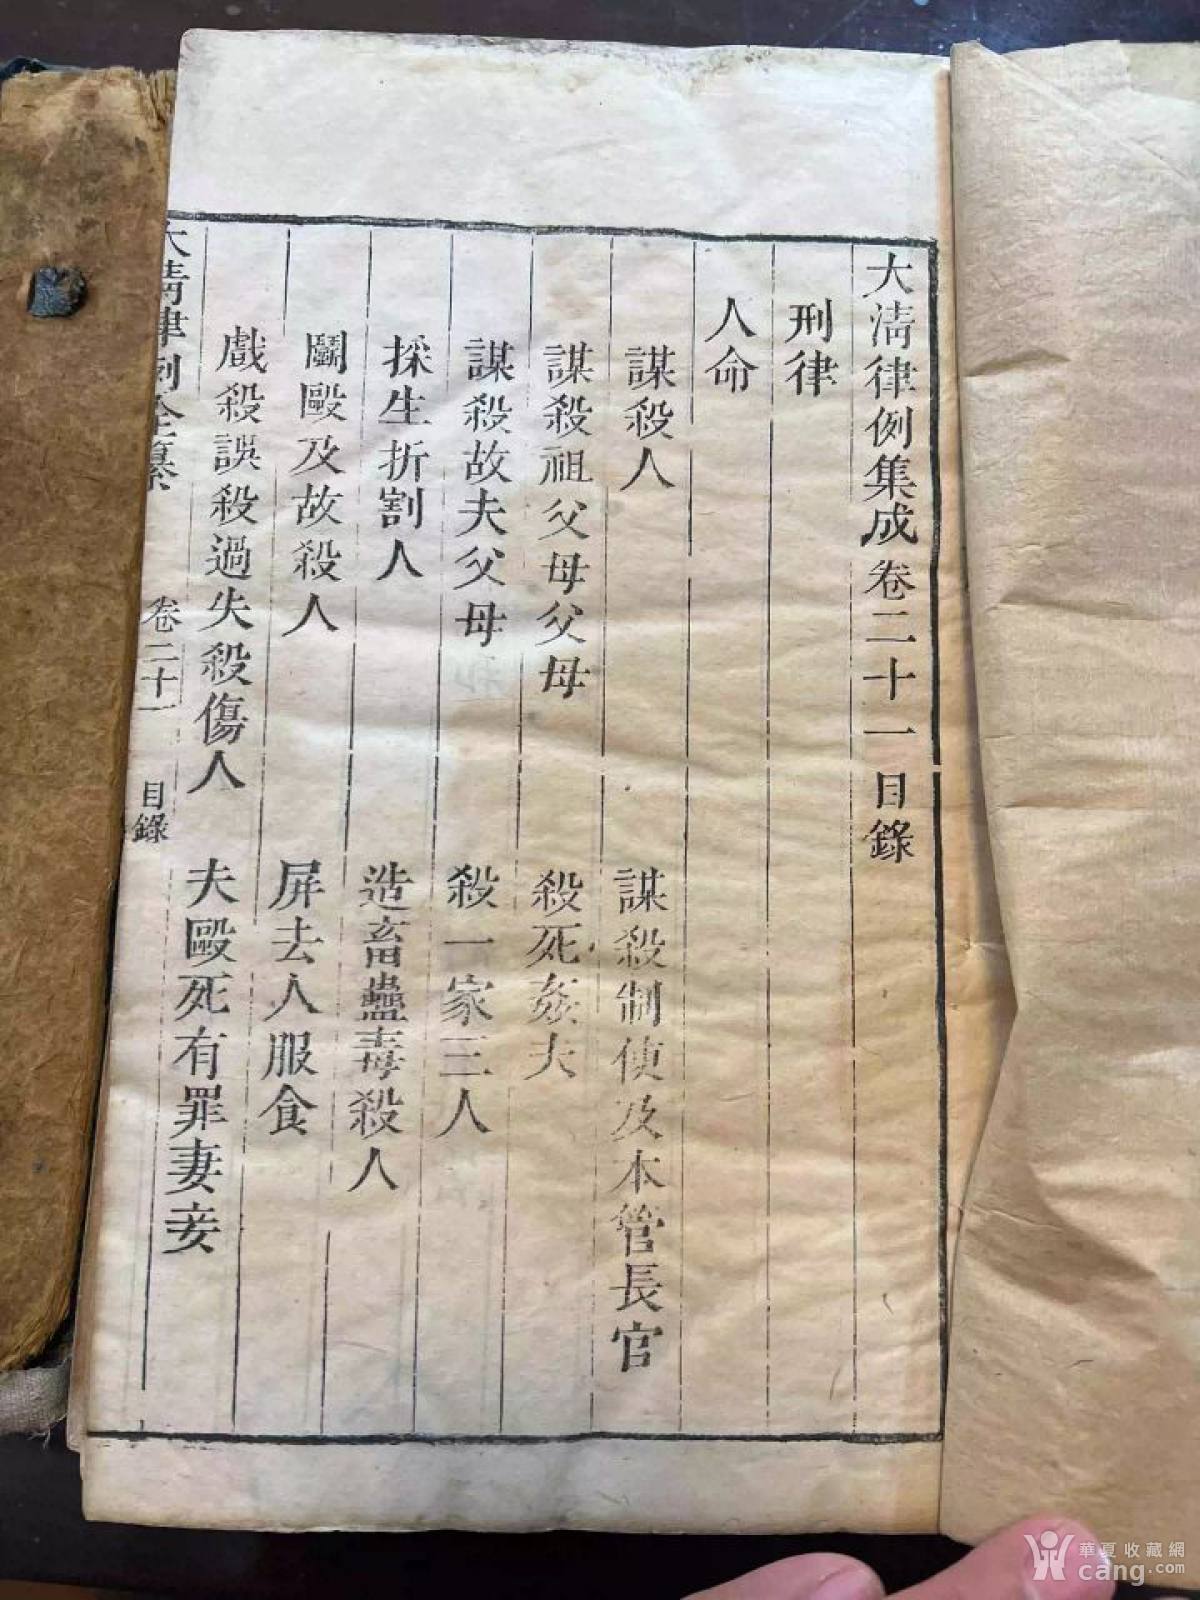 大清律例集成卷二十一目錄
刑律
人命
謀殺人 謀殺制使及本管長官
謀殺祖父母父母 殺死姦夫
謀殺故夫父母 殺一家三人
採生折割人 造畜蠱毒殺人
鬭毆及故殺人 屏去人服食
戲殺誤殺過失殺傷人 夫毆死有罪妻妾
大清律例全纂 卷二十一 目錄
華夏收藏網
cang.com